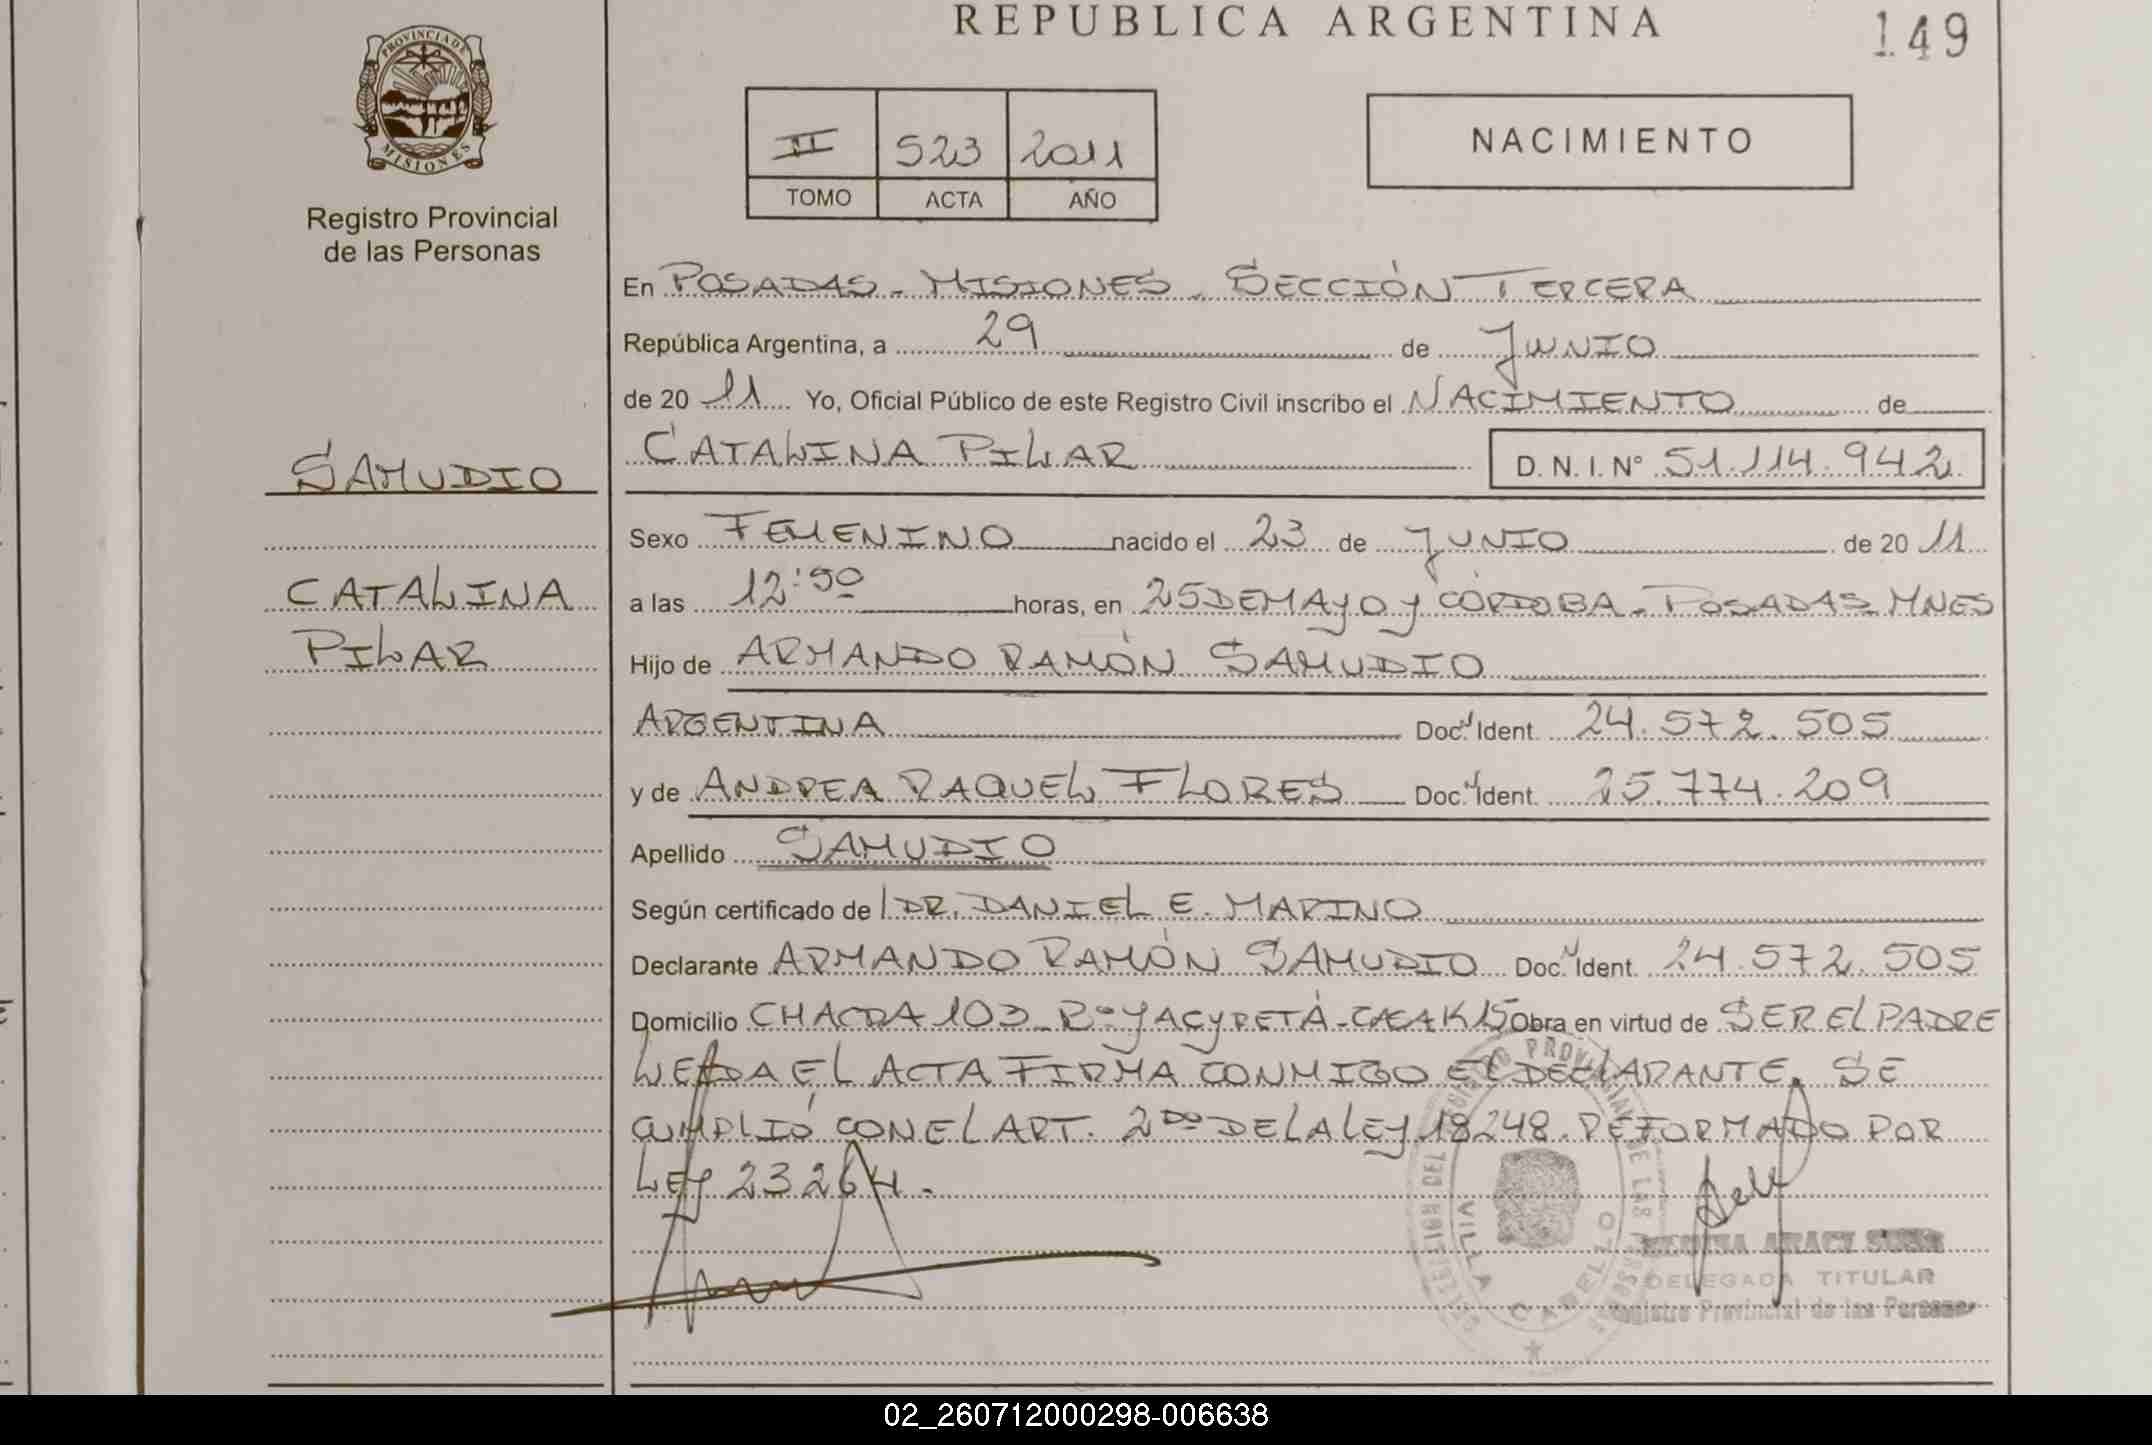 REPUBLICA ARGENTINA
149
PROVINCIA DE
MISIONES
Registro Provincial
de las Personas
II 523 2011
TOMO ACTA AÑO
NACIMIENTO
En POSADAS - MISIONES - SECCIÓN TERCERA
República Argentina, a 29 de JUNIO
de 20 11 Yo, Oficial Público de este Registro Civil inscribo el NACIMIENTO de
CATALINA PILAR D. N. I. Nº 51.114.942
SAMUDIO
CATALINA
PILAR
Sexo FEMENINO nacido el 23 de JUNIO de 20 11
a las 12:50 horas, en 25 DE MAYO y CÓRDOBA - POSADAS MNES
Hijo de ARMANDO RAMÓN SAMUDIO
ARGENTINA Doc. Ident. 24.572.505
y de ANDREA RAQUEL FLORES Doc. Ident. 25.774.209
Apellido SAMUDIO
Según certificado de DR. DANIEL E. MARINO
Declarante ARMANDO RAMÓN SAMUDIO Doc. Ident. 24.572.505
Domicilio CHACRA 103 - Bº YACYRETÁ - K15 Obra en virtud de SER EL PADRE
LEIDA EL ACTA FIRMA CONMIGO EL DECLARANTE. SE
CUMPLIÓ CON EL ART. 2DO DE LA LEY 18248. REFORMADO POR
LEY 23264.
VILLA CABELLO
DELEGADA TITULAR
Registro Provincial de las Personas
02_260712000298-006638